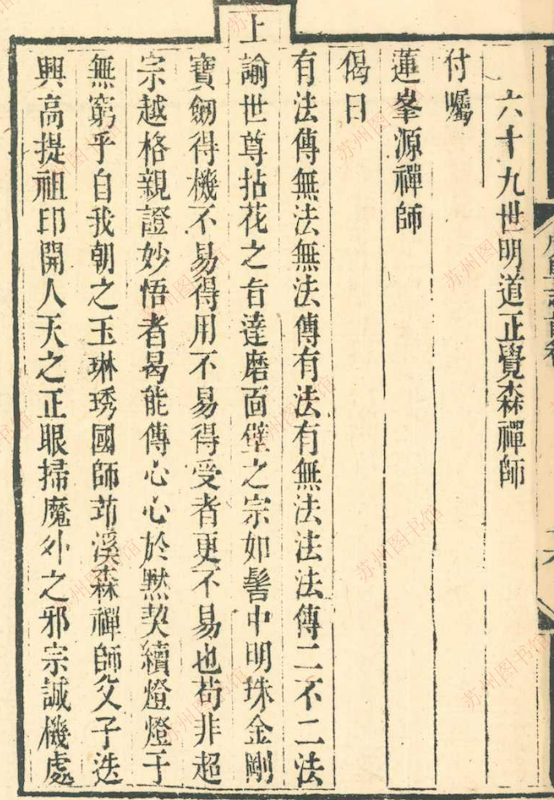 六十九世明道正覺森禪師
付囑
蓮峯源禪師
偈曰
有法傳無法無法傳有法有無法法法傳二不二法
上
諭世尊拈花之旨達磨面壁之宗如髻中明珠金剛
寶劒得機不易得用不易得受者更不易也苟非超
宗越格親證妙悟者曷能傳心心於黙契續燈燈于
無窮乎自我朝之玉琳琇國師茆溪森禪師父子迭
興高提祖印開人天之正眼掃魔外之邪宗誠機處
苏州图书馆